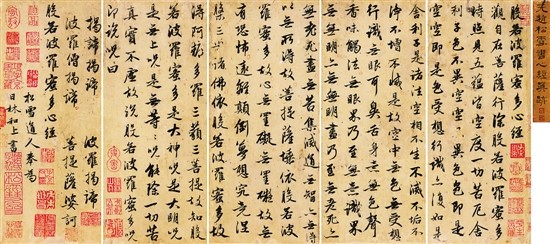 元趙松雪書心經真跡
般若波羅蜜多心經
觀自在菩薩行深般若波羅蜜多
時照見五蘊皆空度一切苦厄舍
利子色不異空空不異色色即是
空空即是色受想行識亦復如是
舍利子是諸法空相不生不滅不垢不
淨不增不減是故空中無色無受想
行識無眼耳鼻舌身意無色聲
香味觸法無眼界乃至無意識界
無無明亦無無明盡乃至無老死亦
無老死盡無苦集滅道無智亦無得
以無所得故菩提薩埵依般若波
羅蜜多故心無罣礙無罣礙故無
有恐怖遠離顛倒夢想究竟涅
槃三世諸佛依般若波羅蜜多故
得阿耨多羅三藐三菩提故知般
若波羅蜜多是大神咒是大明咒
是無上咒是無等等咒能除一切苦
真實不虛故說般若波羅蜜多咒
即說咒曰
揭諦揭諦 波羅揭諦
波羅僧揭諦 菩提薩婆訶
松雪道人奉為
日林和上書